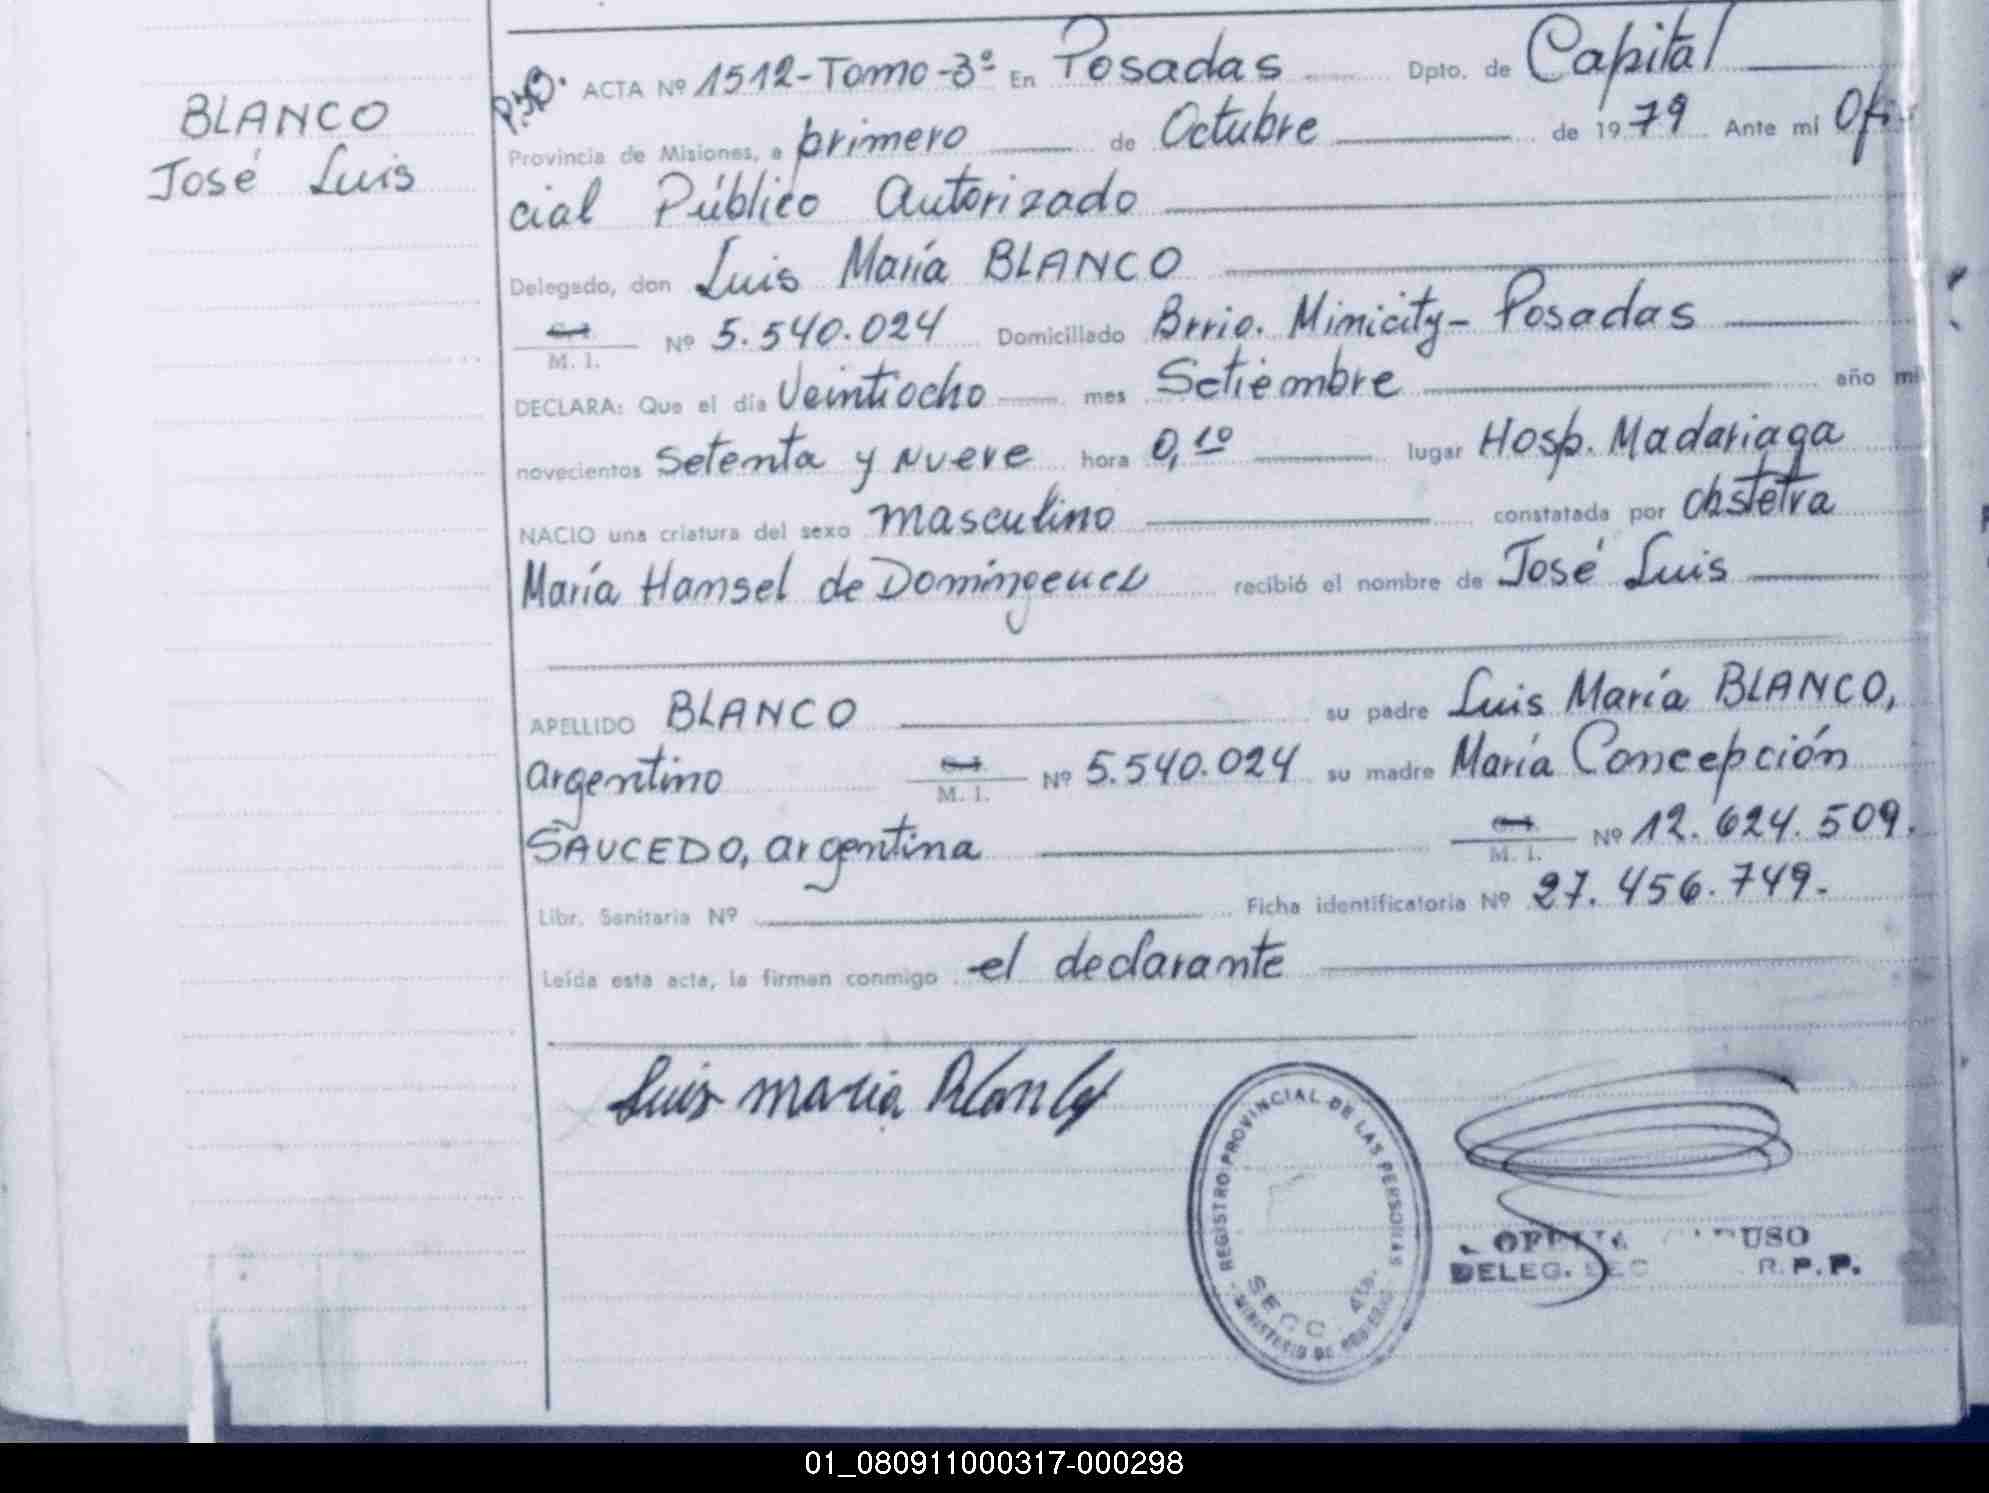 BLANCO
José Luis
ACTA Nº 1512-Tomo-3º En Posadas Dpto. de Capital
Provincia de Misiones, a primero de Octubre de 1979 Ante mí Ofi-
cial Público Autorizado
Delegado, don Luis María BLANCO
C.I. M. I. Nº 5.540.024 Domiciliado Brrio. Minicity- Posadas
DECLARA: Que el día Veintiocho mes Setiembre año mil
novecientos setenta y nueve hora 0,10 lugar Hosp. Madariaga
NACIO una criatura del sexo masculino constatada por obstetra
María Hansel de recibió el nombre de José Luis
APELLIDO BLANCO su padre Luis María BLANCO,
argentino C.I. M. I. Nº 5.540.024 su madre María Concepción
SAUCEDO, argentina C.I. M. I. Nº 12.624.509.
Libr. Sanitaria Nº Ficha identificatoria Nº 27.456.749.-
Leída esta acta, la firman conmigo el declarante
Luis maria Blanco
REGISTRO PROVINCIAL DE LAS PERSONAS
SECC. 4ta.
MINISTERIO DE GOBIERNO
DELEG. R.P.P.
01_080911000317-000298